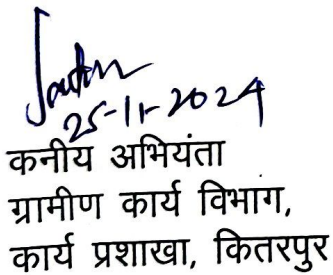 25-11-2024
कनीय अभियंता
ग्रामीण कार्य विभाग,
कार्य प्रशाखा, कितरपुर